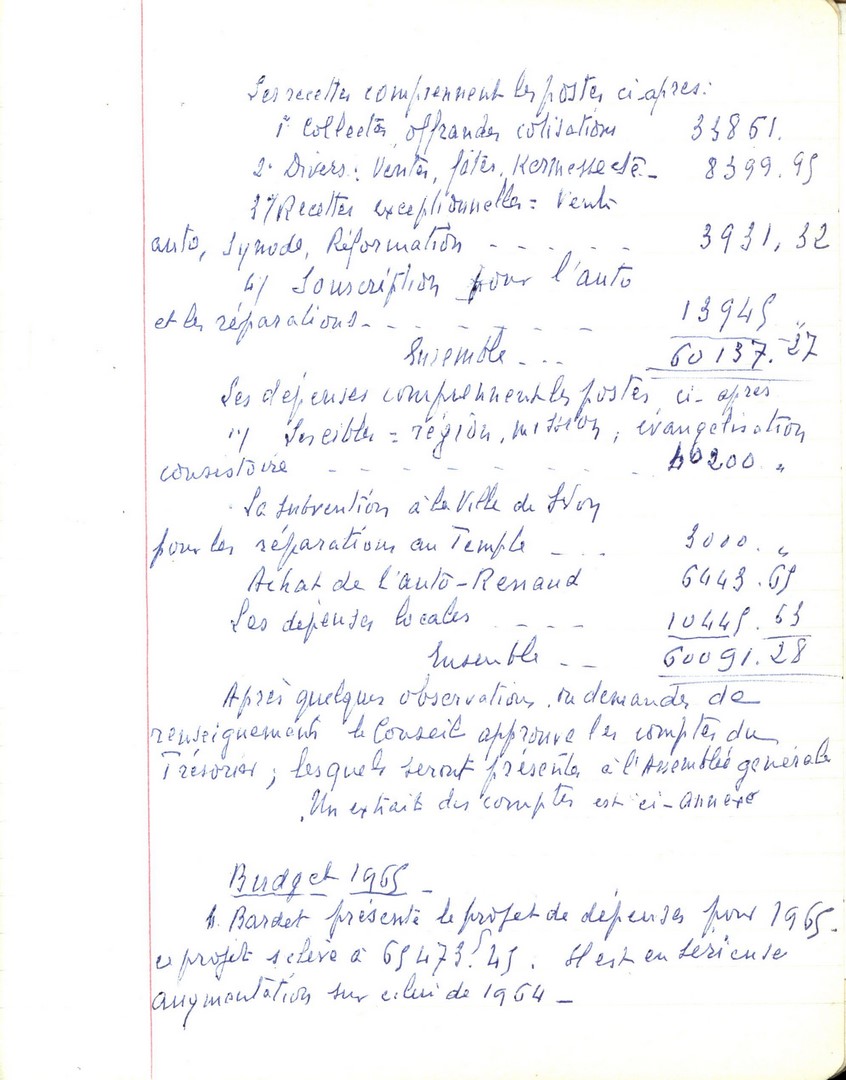 Les recettes comprennent les postes ci-après:
1° Collectes, offrandes cotisations 33861.
2° Divers: Ventes, fêtes, Kermesse etc - 8399.95
3°/ Recettes exceptionnelles = Vente
auto, Synode, Réformation - - - - - 3931,32
4/ Souscription pour l'auto
et les réparations - - - - - - 13945 "
Ensemble - - - 60137.27
Les dépenses comprennent les postes ci-après
1°/ Les cibles = région, mission, évangélisation
consistoire - - - - - - - - 40200 "
La subvention à la Ville de Lyon
pour les réparations au Temple - - - 3000. "
Achat de l'auto-Renaud 6443.65
Les dépenses locales - - - - 10445.63
Ensemble - - 60091.28
Après quelques observations ou demandes de
renseignements le Conseil approuve les comptes du
Trésorier; lesquels seront présentés à l'Assemblée générale
Un extrait des comptes est ci-annexé
Budget 1965 -
M. Bardet présente le projet de dépenses pour 1965.
ce projet s'élève à 65473.F45. Il est en sérieuse
augmentation sur celui de 1964 -